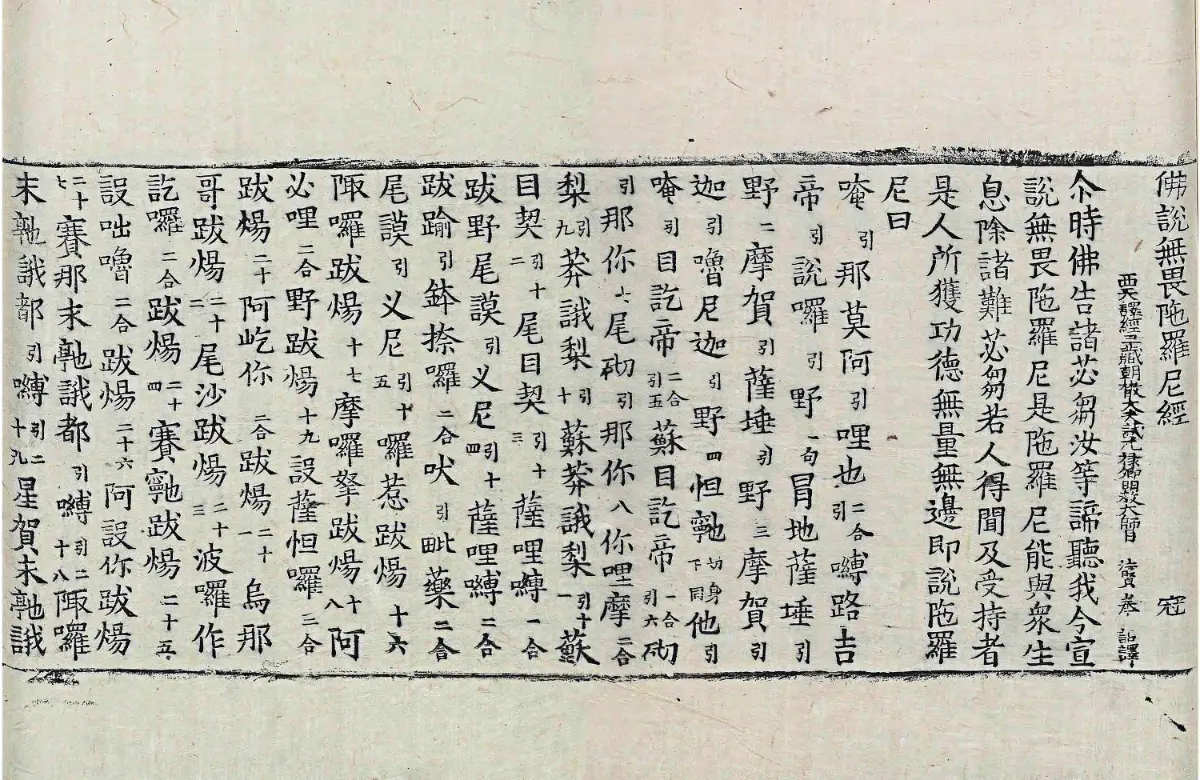 佛說無畏陁羅尼經 㓂
西天譯經三藏朝散大夫試光祿卿明教大師 法賢奉 詔譯
尒時佛告諸苾芻汝等諦聽我今宣
說無畏陁羅尼是陁羅尼能與衆生
息除諸難苾芻若人得聞及受持者
是人所獲功德無量無邊即說陁羅
尼曰
唵引那莫阿引哩也二合引嚩路吉
帝引說囉引野一句冐地薩埵引
野二摩賀引薩埵引野三摩賀引
迦引嚕尼迦引野四怛寧也切身下同他引
唵引目訖帝二合引五蘇目訖帝一合引六砌
引那你七尾砌引那你八你哩摩二合
梨引九莽誐梨引十蘇莽誐梨引十一蘇
目契引十二尾目契引十三薩哩嚩一合
跋野尾謨引义尼引十四薩哩嚩二合
跋踰引鉢捺囉二合吠引毗藥二合
尾謨引义尼引十五囉惹跋煬十六
陬囉跋煬十七摩囉拏跋煬十八阿
必哩二合野跋煬十九設薩怛囉三合
跋煬二十阿屹你二合跋煬二十一烏那
哥跋煬二十二尾沙跋煬二十三波囉作
訖囉二合跋煬二十四賽寧也跋煬二十五
設咄嚕二合跋煬二十六阿設你跋煬
二十七賽那末誐都引嚩引二十八陬囉
末誐都引嚩引二十九星賀末誐